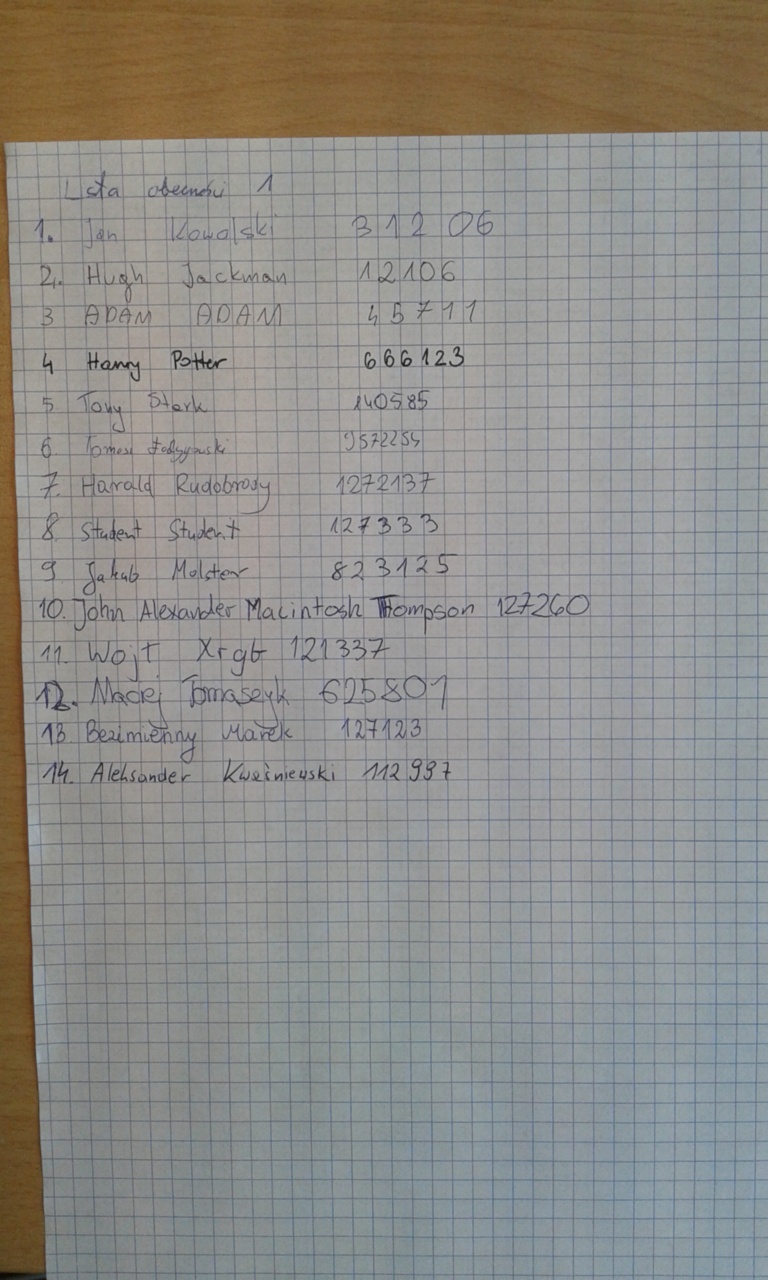 Lista obecności 1
1. Jan Kowalski 31206
2. Hugh Jackman 12106
3 ADAM ADAM 45711
4 Harry Potter 666123
5 Tony Stark 140585
6. Tomasz 9572254
7. Harald Rudobrody 1272137
8. Student Student 127333
9 Jakub Molster 823125
10. John Alexander Macintosh Thompson 127260
11. Wojt Xrgb 121337
12. Maciej Tomaszyk 625801
13 Bezimienny Marek 127123
14. Aleksander Kwaśniewski 112997